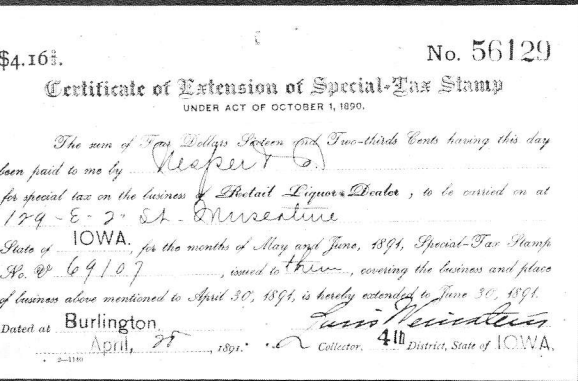 $4.16⅔.
No. 56129
Certificate of Extension of Special-Tax Stamp
UNDER ACT OF OCTOBER 1, 1890.
The sum of Four Dollars Sixteen and Two-thirds Cents having this day
been paid to me by Nesper & Co.
for special tax on the business of Retail Liquor Dealer, to be carried on at
129 - E - 2" St - Muscatine
State of IOWA., for the months of May and June, 1891, Special-Tax Stamp
No. 69107, issued to them, covering the business and place
of business above mentioned to April 30, 1891, is hereby extended to June 30, 1891.
Dated at Burlington,
April, 1891. Collector, 4th District, State of IOWA.
2—1140